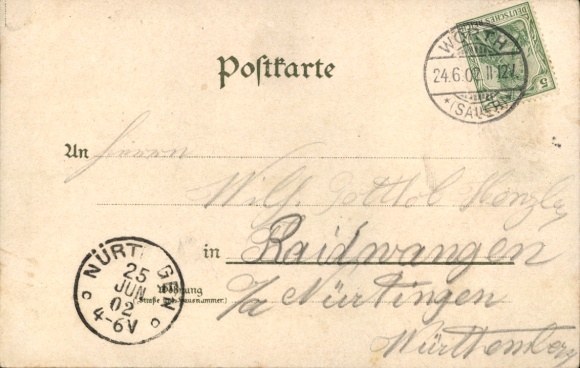 DEUTSCHES REICH
5
WÖRTH
24.6.02.11-12V.
*(SAUER)*
Postkarte
An Herrn
Wilh. Gottlob Henzler
in Raidwangen
Wohnung
(Straße und Hausnummer)
o/a Nürtingen
Württemberg
NÜRTINGEN
25
JUN
02
4-6V